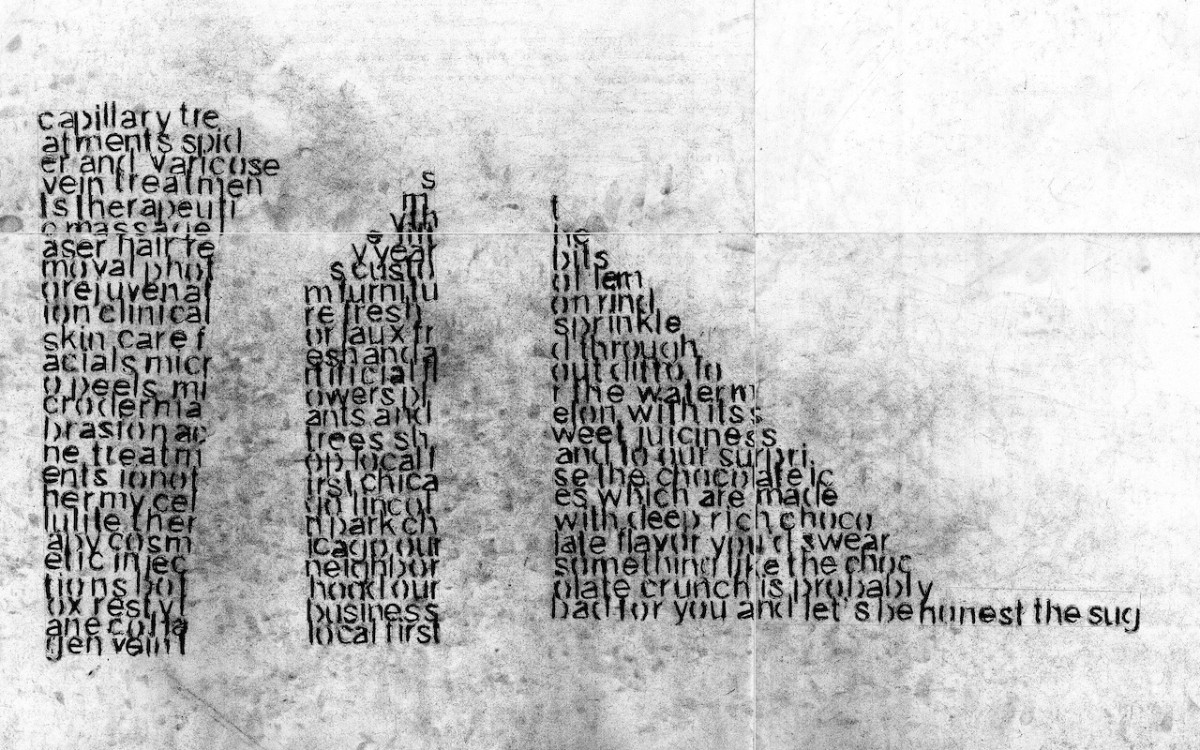 capillary tre
atments spid
er and varicose
vein treatmen
ts therapeuti
c massage l
aser hair re
moval phot
orejuvenat
ion clinical
skin care f
acials micr
o peels mi
croderma
brasion ac
ne treatm
ents ionot
hermy cel
lulite ther
apy cosm
etic injec
tions bot
ox restyl
ane colla
gen vein t
s
m
vith
e
y year
s custo
m furnitu
re fresh
or faux fr
esh and a
rtificial fl
owers pl
ants and
trees sh
op local f
irst chica
go lincol
n park ch
icago our
neighbor
hood our
business
local first
t
he
bits
of lem
on rind
sprinkle
d through
out ditto fo
r the waterm
elon with its s
weet juiciness
and to our surpri
se the chocolate ic
es which are made
with deep rich choco
late flavor you'd swear
something like the choc
olate crunch is probably
bad for you and let's be honest the sug